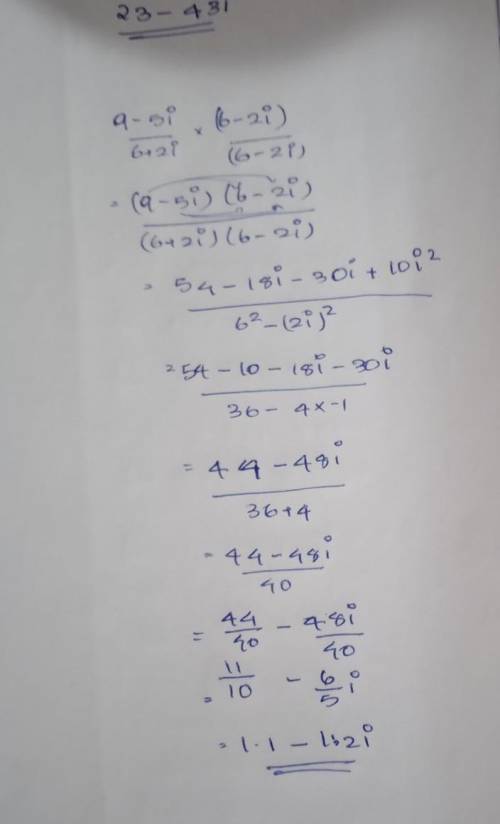 23 - 43i
9-5i/6+2i × (6-2i)/(6-2i)
= (9-5i)(6-2i)/(6+2i)(6-2i)
= 54-18i-30i+10i²/6²-(2i)²
= 54-10-18i-30i/36-4×-1
= 44-48i/36+4
= 44-48i/40
= 44/40 - 48i/40
= 11/10 - 6/5 i
= 1.1 - 1.2i